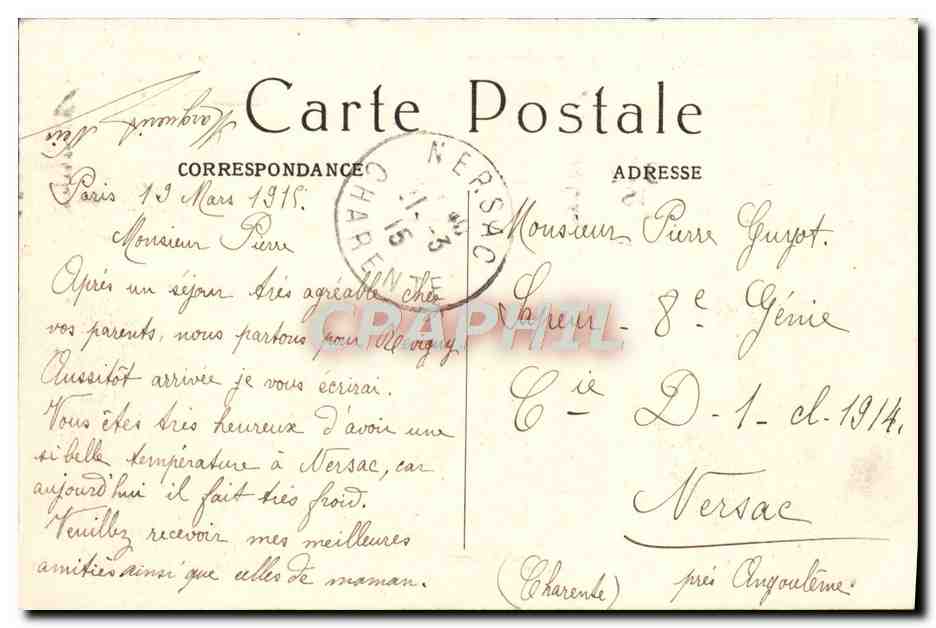 Carte Postale
CORRESPONDANCE
ADRESSE
NERSAC
21-3
15
CHARENTE
Marguerite
Paris 19 Mars 1915.
Monsieur Pierre
Après un séjour très agréable chez
vos parents, nous partons pour Revigny
Aussitôt arrivée je vous écrirai.
Vous êtes très heureux d'avoir une
si belle température à Nersac, car
aujourd'hui il fait très froid.
Veuillez recevoir mes meilleures
amitiés ainsi que celles de maman.
Monsieur Pierre Guyot.
Sapeur - 8e Génie
Cie D-1-cl-1914.
Nersac
près Angoulême
(Charente)
CPAPHIL